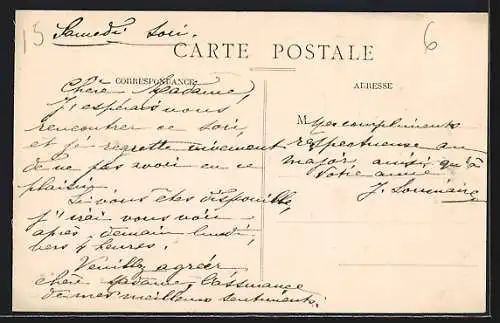 15
Samedi soir.
6
CARTE POSTALE
CORRESPONDANCE
Chère Madame,
J'espérais vous
rencontrer ce soir,
et je regrette vivement
de ne pas avoir eu ce
plaisir.
Si vous êtes disponible,
j'irai vous voir
après-demain lundi,
vers 4 heures.
Veuillez agréer
chère Madame, l'assurance
de mes meilleurs sentiments.
ADRESSE
M Mes compliments
respectueux au
major, ainsi qu'à
votre amie
J.